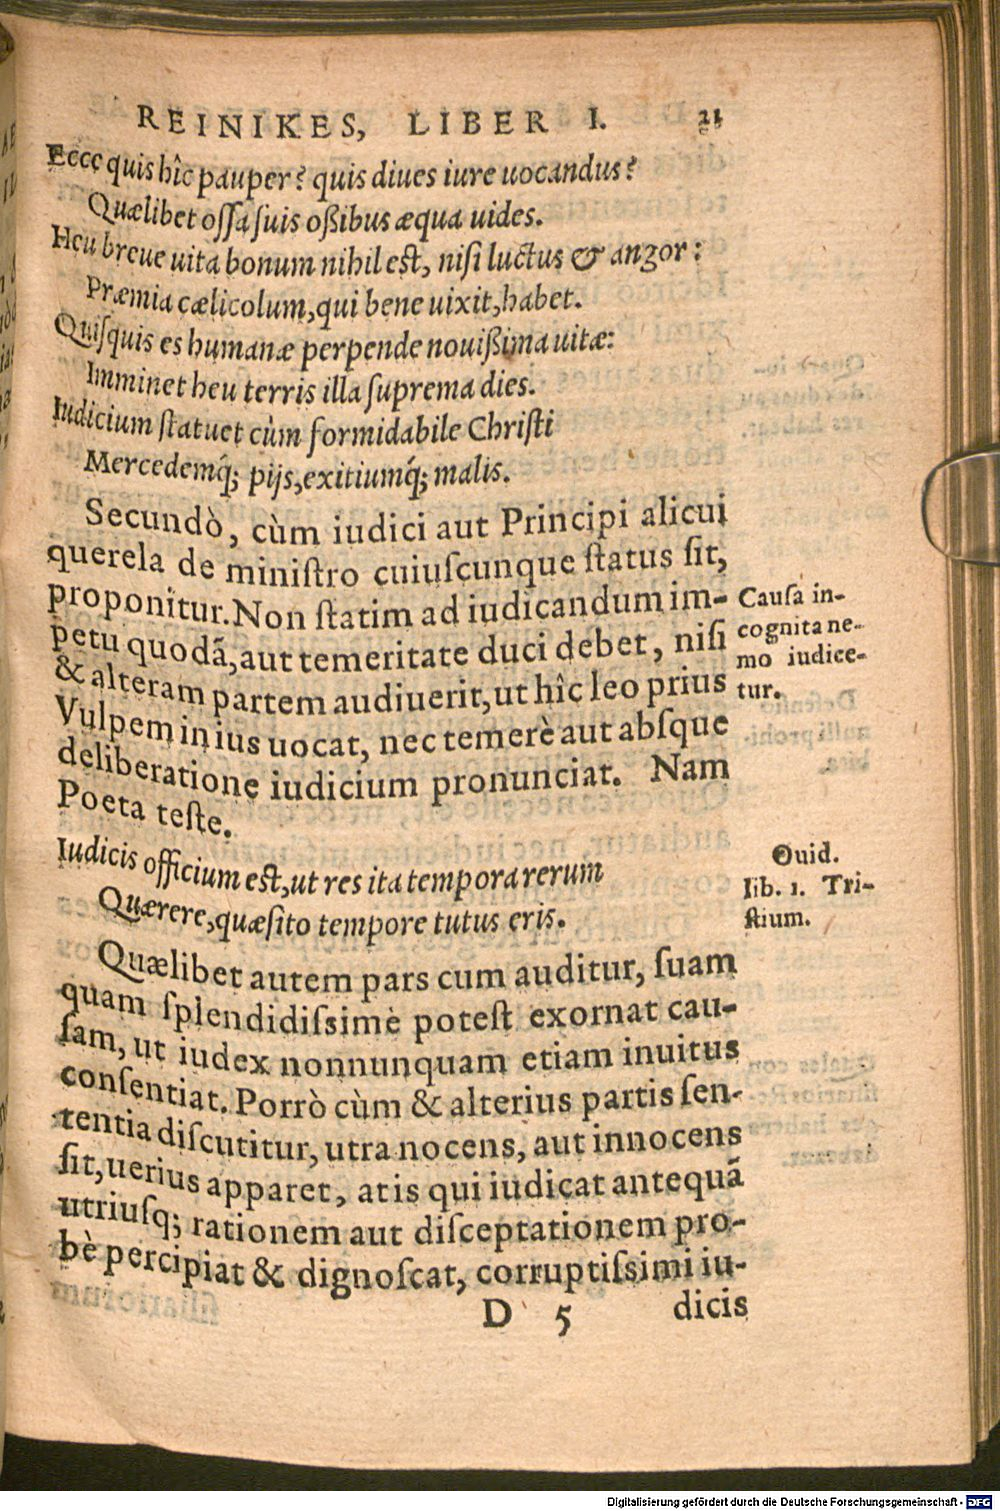 REINIKES, LIBER I. 21
Ecce quis hîc pauper? quis diues iure uocandus?
Quælibet oſſa ſuis oßibus æqua uides.
Heu breue uita bonum nihil est, niſi luctus & angor:
Præmia cælicolum, qui bene uixit, habet.
Quiſquis es humanæ perpende nouißima uitæ:
Imminet heu terris illa ſuprema dies.
Iudicium ſtatuet cùm formidabile Chriſti
Mercedemq́; pijs, exitiumq́; malis.
Secundò, cùm iudici aut Principi alicui
querela de miniſtro cuiuſcunque ſtatus ſit,
proponitur. Non ſtatim ad iudicandum im-
petu quodã, aut temeritate duci debet, niſi
& alteram partem audiuerit, ut hîc leo prius
Vulpem in ius uocat, nec temerè aut abſque
deliberatione iudicium pronunciat. Nam
Poeta teſte.
Cauſa in-
cognita ne-
mo iudice-
tur.
Iudicis officium est, ut res ita tempora rerum
Quærere, quæſito tempore tutus eris.
Ouid.
lib. 1. Tri-
ſtium.
Quælibet autem pars cum auditur, ſuam
quam ſplendidiſsimè poteſt exornat cau-
ſam, ut iudex nonnunquam etiam inuitus
conſentiat. Porrò cùm & alterius partis ſen-
tentia diſcutitur, utra nocens, aut innocens
ſit, uerius apparet, at is qui iudicat antequã
utriuſq; rationem aut diſceptationem pro-
bè percipiat & dignoſcat, corruptiſsimi iu-
D 5 dicis
Digitalisierung gefördert durch die Deutsche Forschungsgemeinschaft - DFG